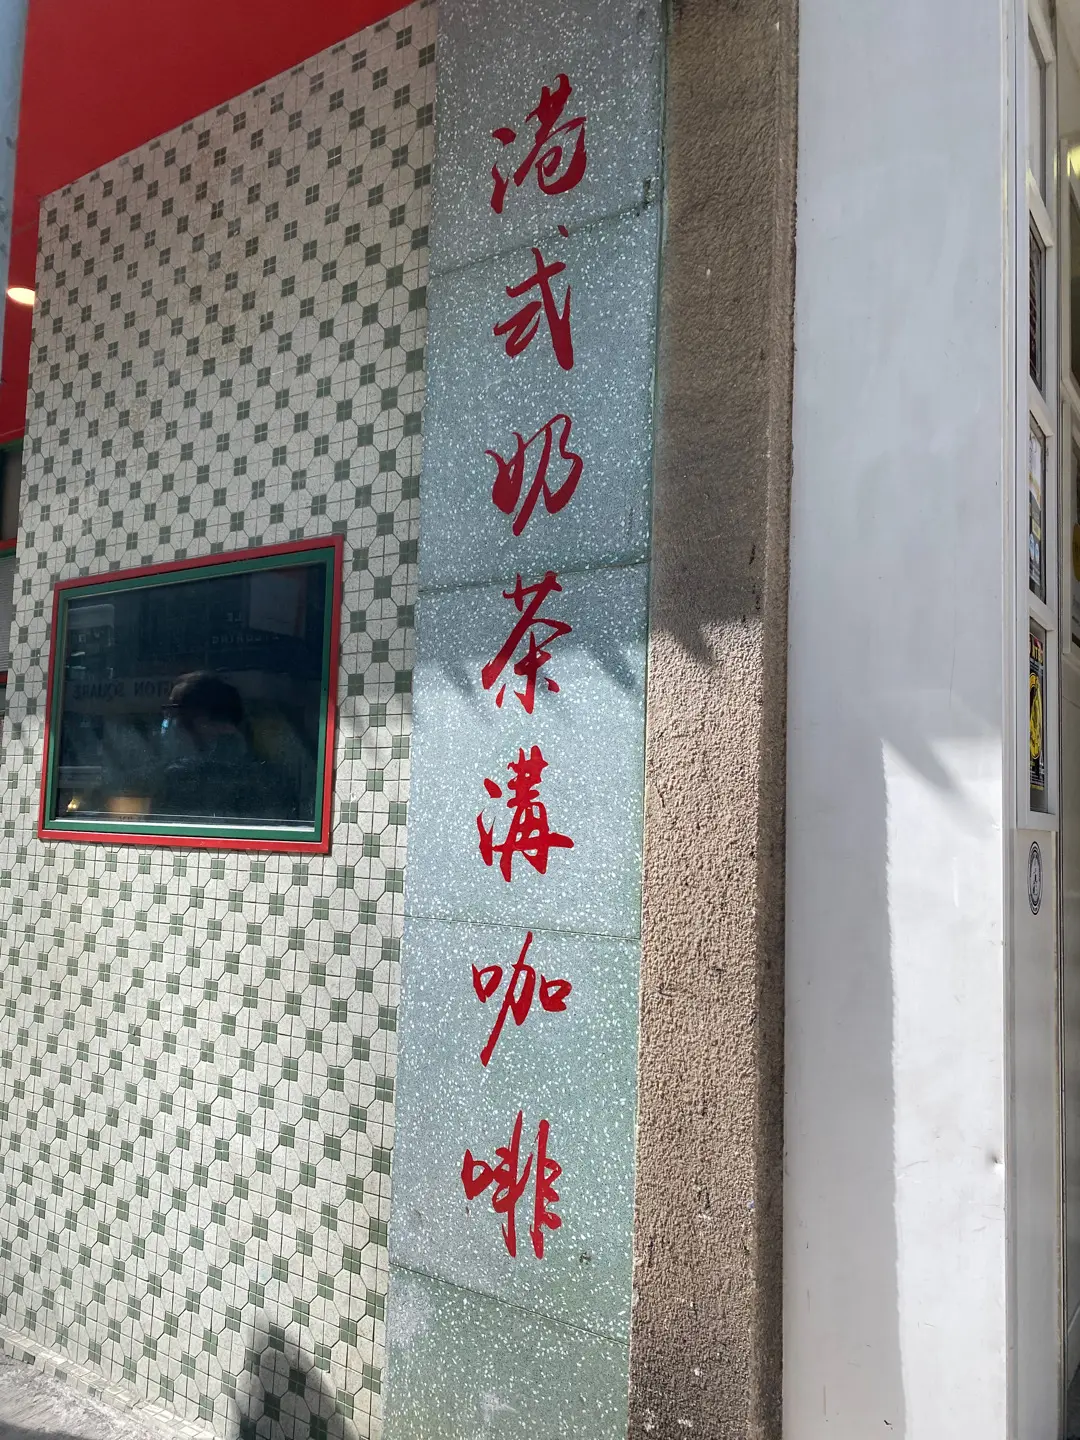 港式奶茶溝咖啡